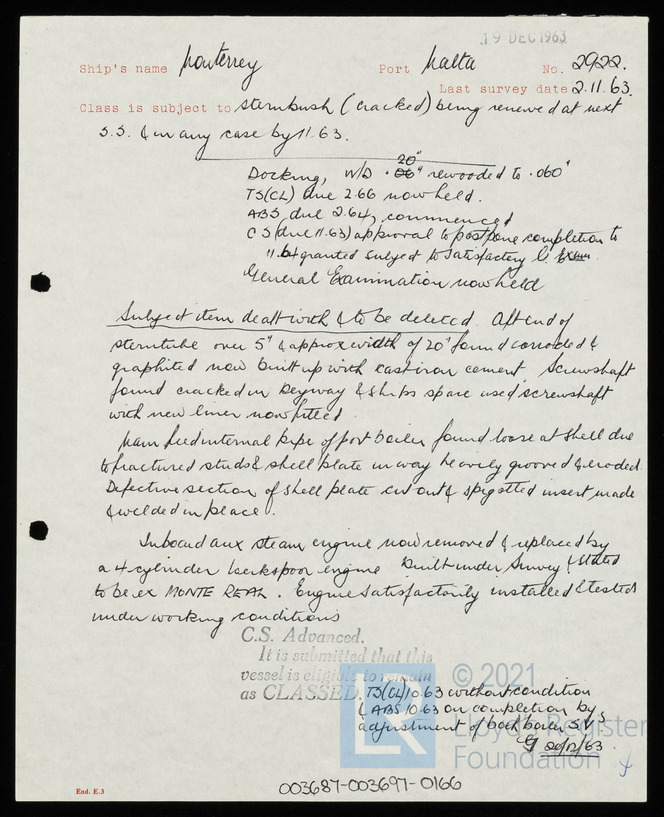 19 DEC 1963
Ship's name Monterrey Port Malta No. 2922.
Last survey date 2.11.63.
Class is subject to sternbush (cracked) being renewed at next
S.S. & in any case by 11.63.
20"
Docking, W/D . rewooded to .060"
TS(CL) due 2.66 now held.
ABS due 2.64, commenced
CS (due 11.63) approval to postpone completion to
11.64 granted subject to satisfactory G. Exam
General Examination now held
Subject item dealt with & to be deleted. Aft end of
sterntube over 5" & approx width of 20" found corroded &
graphited now built up with cast iron cement. Screwshaft
found cracked in keyway & ships spare used screwshaft
with new liner now fitted.
Main feed internal pipe of port boiler found loose at shell due
to fractured studs & shell plate in way heavily grooved & eroded.
Defective section of shell plate cut out & spigotted insert made
& welded in place.
Inboard aux steam engine now removed & replaced by
a 4 cylinder Werkspoor engine Built under Survey & stated
to be ex MONTE REAL. Engine satisfactorily installed & tested
under working conditions
C.S. Advanced.
It is submitted that this
vessel is eligible to remain
as CLASSED. TS(CL) 10.63 without condition
& ABS 10.63 on completion by
adjustment of both boiler S.V.s
20/12/63
© 2021
LR
Lloyd's Register
Foundation
End. E.3
003687-003697-0166